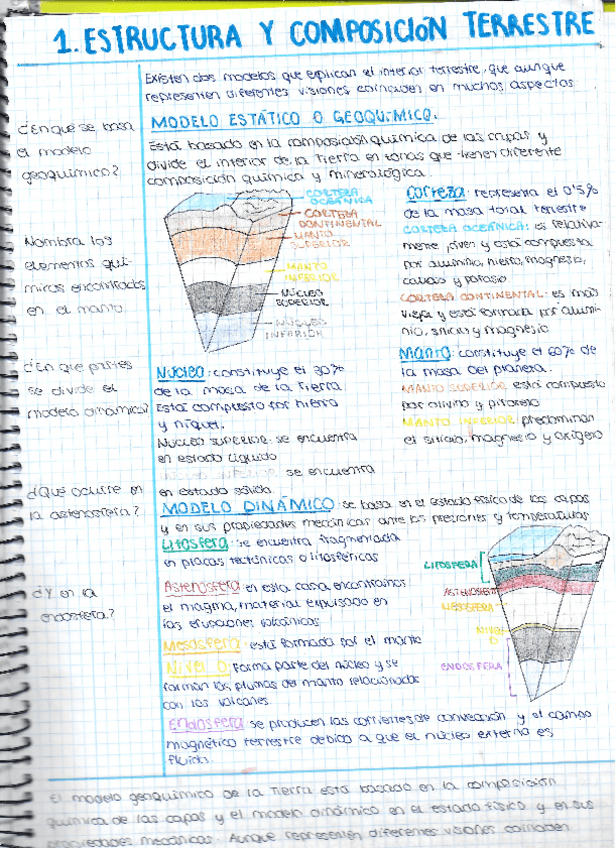 1. ESTRUCTURA Y COMPOSICIÓN TERRESTRE
Existen dos modelos que explican el interior terrestre, que aunque
representen diferentes visiones coinciden en muchos aspectos
¿En qué se basa
el modelo
geoquímico?
MODELO ESTÁTICO O GEOQUÍMICO.
Está basado en la composición química de las capas y
divide el interior de la Tierra en zonas que tienen diferente
composición química y mineralógica.
Nombra los
elementos quí-
micos encontrados
en el manto.
CORTEZA OCEÁNICA
CORTEZA CONTINENTAL
MANTO SUPERIOR
MANTO INFERIOR
NÚCLEO SUPERIOR
NÚCLEO INFERIOR
Corteza: representa el 0'5%
de la masa total terrestre
CORTEZA OCEÁNICA: es relativa-
mente joven y está compuesta
por aluminio, hierro, magnesio,
calcio y potasio
CORTEZA CONTINENTAL: es más
vieja y está formada por alumi-
nio, silicio y magnesio
Manto: constituye el 60% de
la masa del planeta.
MANTO SUPERIOR: está compuesto
por olivino y piroxeno
MANTO INFERIOR: predominan
el silicio, magnesio y oxígeno
¿En que partes
se divide el
modelo dinámico?
Núcleo: constituye el 30%
de la masa de la Tierra.
Está compuesto por hierro
y níquel.
Núcleo superior: se encuentra
en estado líquido
Núcleo inferior: se encuentra
en estado sólido.
¿Qué ocurre en
la astenosfera?
¿Y en la
endosfera?
MODELO DINÁMICO: se basa en el estado físico de las capas
y en sus propiedades mecánicas ante las presiones y temperaturas
Litosfera: se encuentra fragmentada
en placas tectónicas o litosféricas
Astenosfera: en esta capa encontramos
el magma, material expulsado en
las erupciones volcánicas
Mesosfera: está formada por el manto
Nivel D: forma parte del núcleo y se
forman las plumas del manto relacionadas
con los volcanes
Endosfera: se producen las corrientes de convección y el campo
magnético terrestre debido a que el núcleo externo es
fluido.
LITOSFERA
ASTENOSFERA
MESOSFERA
NIVEL D
ENDOSFERA
El modelo geoquímico de la Tierra está basado en la composición
química de las capas y el modelo dinámico en el estado físico y en sus
propiedades mecánicas. Aunque representen diferentes visiones coinciden